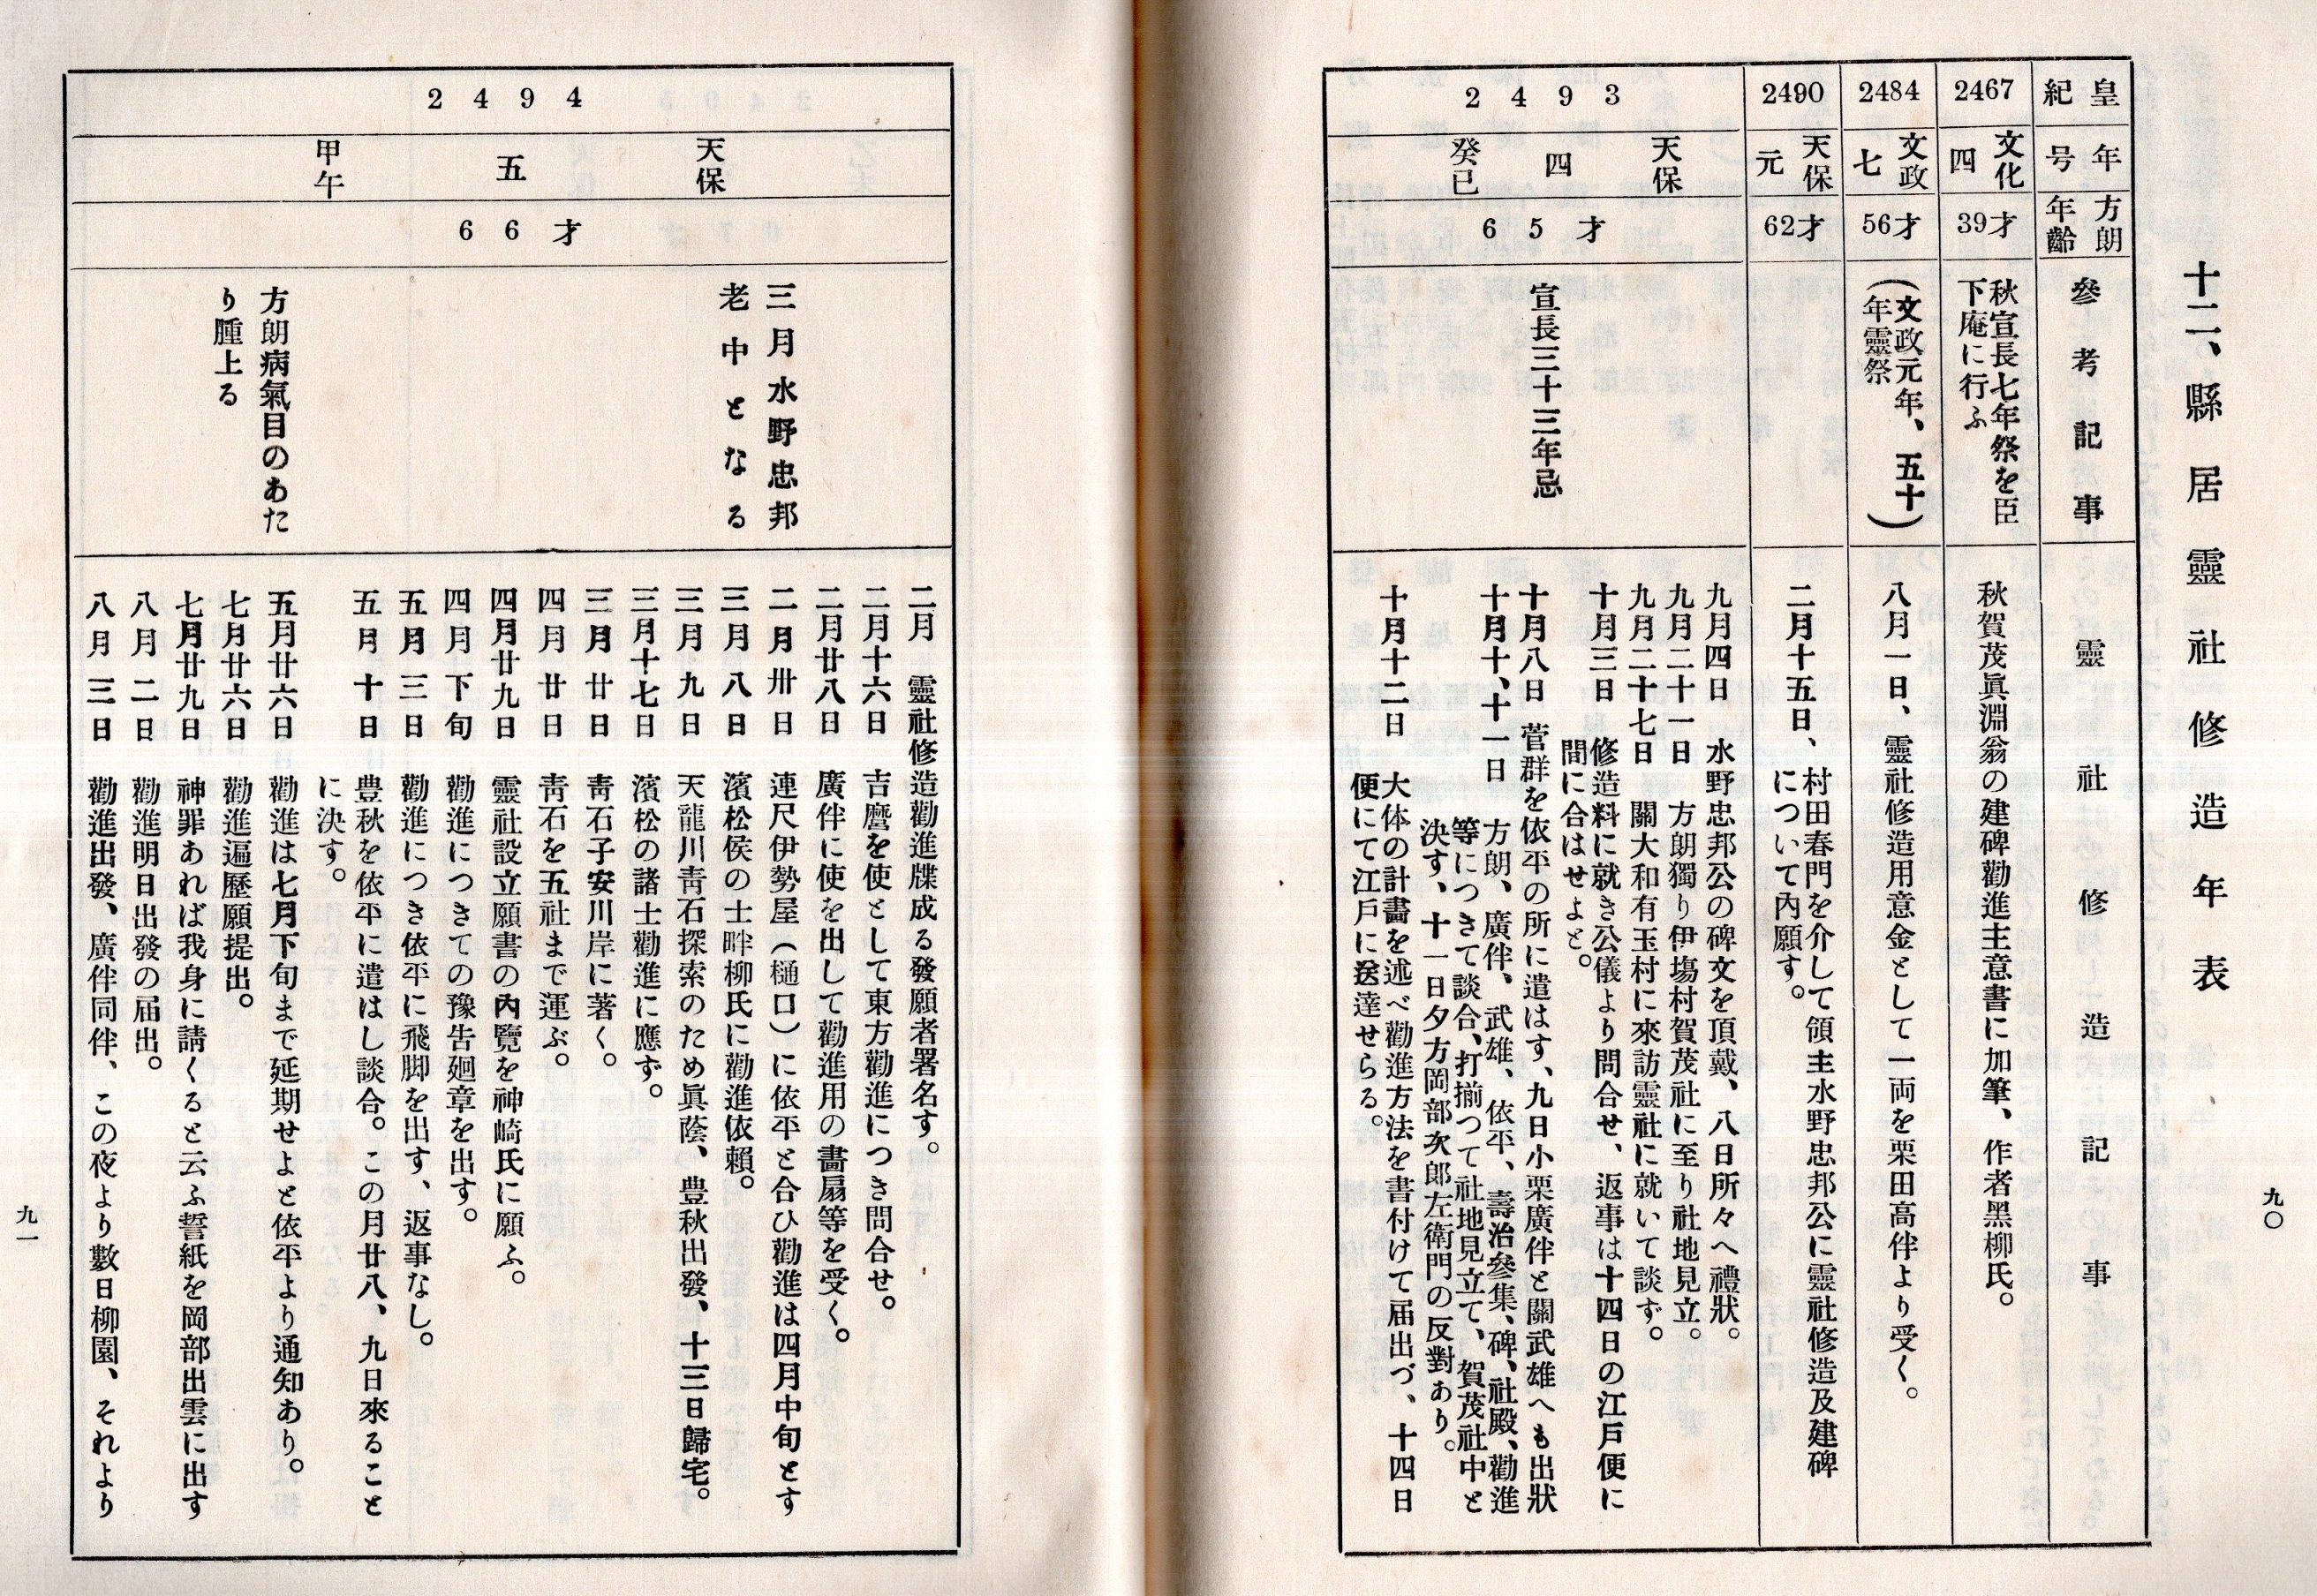 十二、縣居靈社修造年表
皇紀
年号
方朗年齡
參考記事
靈社修造記事
2467
文化四
39才
秋宣長七年祭を臣
下庵に行ふ
秋賀茂眞淵翁の建碑勸進主意書に加筆、作者黑柳氏。
2484
文政七
56才
(文政元年、五十
年靈祭)
八月一日、靈社修造用意金として一両を栗田高伴より受く。
2490
天保元
62才
二月十五日、村田春門を介して領主水野忠邦公に靈社修造及建碑
について內願す。
2493
天保四癸巳
65才
宣長三十三年忌
九月四日 水野忠邦公の碑文を頂戴、八日所々へ禮狀。
九月二十一日 方朗獨り伊塲村賀茂社に至り社地見立。
九月二十七日 關大和有玉村に來訪靈社に就いて談ず。
十月三日 修造料に就き公儀より問合せ、返事は十四日の江戸便に
問に合はせよと。
十月八日 菅群を依平の所に遣はす、九日小栗廣伴と關武雄へも出狀
十月十、十一日 方朗、廣伴、武雄、依平、壽治參集、碑、社殿、勸進
等につきて談合、打揃つて社地見立て、賀茂社中と
決す、十一日夕方岡部次郎左衛門の反對あり。
十月十二日 大体の計畫を述べ勸進方法を書付けて届出づ、十四日
便にて江戸に送達せらる。
九〇
2494
天保五甲午
66才
三月水野忠邦
老中となる
方朗病氣目のあた
り腫上る
二月 靈社修造勸進牒成る發願者署名す。
二月十六日 吉麿を使として東方勸進につき問合せ。
二月廿八日 廣伴に使を出して勸進用の畵扇等を受く。
二月卅日 連尺伊勢屋(樋口)に依平と合ひ勸進は四月中旬とす
三月八日 濱松侯の士畔柳氏に勸進依賴。
三月九日 天龍川靑石探索のため眞蔭、豊秋出發、十三日歸宅。
三月十七日 濱松の諸士勸進に應ず。
三月廿日 靑石子安川岸に著く。
四月廿日 靑石を五社まで運ぶ。
四月廿九日 靈社設立願書の內覽を神崎氏に願ふ。
四月下旬 勸進につきての豫告廻章を出す。
五月三日 勸進につき依平に飛脚を出す、返事なし。
五月十日 豊秋を依平に遣はし談合。この月廿八、九日來ること
に決す。
五月廿六日 勸進は七月下旬まで延期せよと依平より通知あり。
七月廿六日 勸進遍歷願提出。
七月廿九日 神罪あれば我身に請くると云ふ誓紙を岡部出雲に出す
八月二日 勸進明日出發の届出。
八月三日 勸進出發、廣伴同伴、この夜より數日柳園、それより
九一